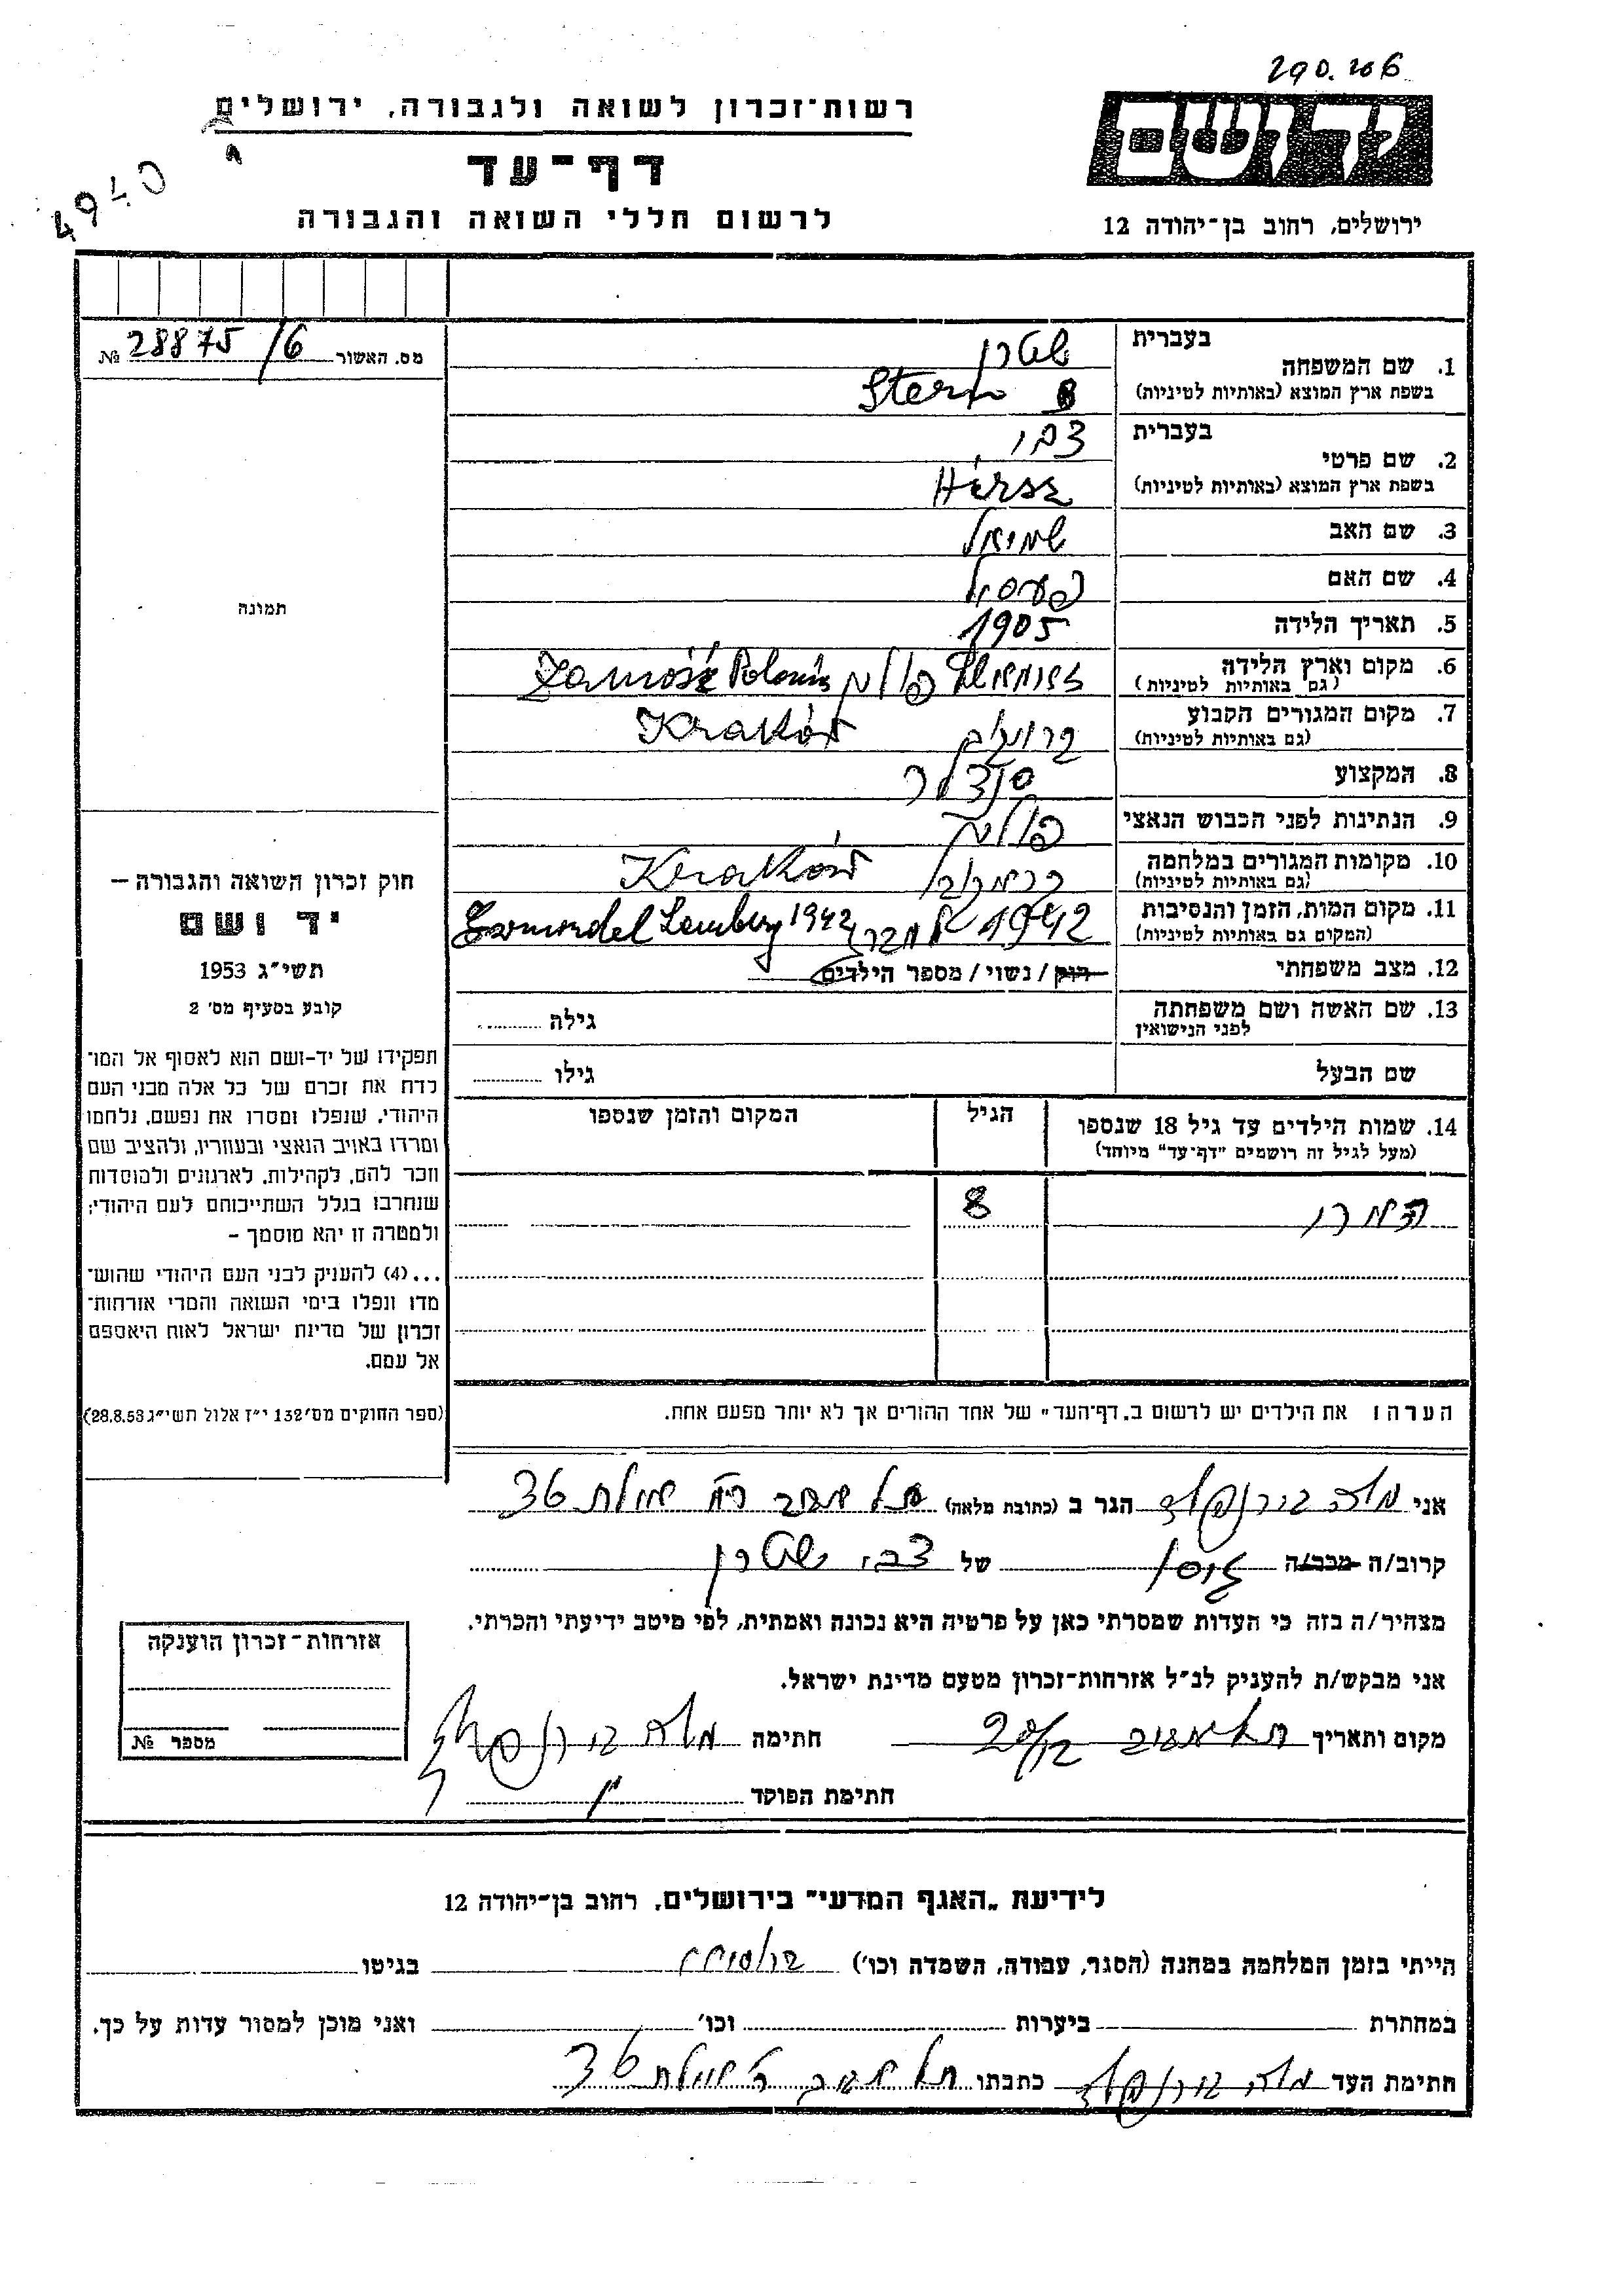 290.206
רשות־זכרון לשואה ולגבורה, ירושלים
דף־עד
לרשום חללי השואה והגבורה
ידושם
ירושלים, רחוב בן־יהודה 12
מס. האשור № 28875/6
תמונה
1. שם המשפחה
בעברית שטרן
בשפת ארץ המוצא (באותיות לטיניות) Stern
2. שם פרטי
בעברית צבי
בשפת ארץ המוצא (באותיות לטיניות) Hersz
3. שם האב שמואל
4. שם האם
5. תאריך הלידה 1905
6. מקום וארץ הלידה
(גם באותיות לטיניות) פולין Zamość
7. מקום המגורים הקבוע
(גם באותיות לטיניות) Kraków
8. המקצוע סנדלר
9. הנתינות לפני הכבוש הנאצי
10. מקומות המגורים במלחמה
(גם באותיות לטיניות) Kraków
11. מקום המות, הזמן והנסיבות
(המקום גם באותיות לטיניות) 1942 Lemberg 1942
12. מצב משפחתי רווק / נשוי / מספר הילדים
13. שם האשה ושם משפחתה
לפני הנישואין
גילה
שם הבעל גילו
14. שמות הילדים עד גיל 18 שנספו
(מעל לגיל זה רושמים "דף־עד" מיוחד)
הגיל
המקום והזמן שנספו
8
הערה: את הילדים יש לרשום ב„דף־העד" של אחד ההורים אך לא יותר מפעם אחת.
חוק זכרון השואה והגבורה —
יד ושם
תשי"ג 1953
קובע בסעיף מס' 2
תפקידו של יד־ושם הוא לאסוף אל המו־
לדת את זכרם של כל אלה מבני העם
היהודי, שנפלו ומסרו את נפשם, נלחמו
ומרדו באויב הנאצי ובעוזריו, ולהציב שם
וזכר להם, לקהילות, לארגונים ולמוסדות
שנחרבו בגלל השתייכותם לעם היהודי;
ולמטרה זו יהא מוסמך –
...(4) להעניק לבני העם היהודי שהוש־
מדו ונפלו בימי השואה והמרי אזרחות־
זכרון של מדינת ישראל לאות היאספם
אל עמם.
(ספר החוקים מס' 132 י"ז אלול תשי"ג 28.8.53)
אני הגר ב (כתובת מלאה) 36
קרוב/ה מכר/ה גיסו של צבי שטרן
מצהיר/ה בזה כי העדות שמסרתי כאן על פרטיה היא נכונה ואמתית, לפי מיטב ידיעתי והכרתי.
אני מבקש/ת להעניק לנ"ל אזרחות־זכרון מטעם מדינת ישראל.
מקום ותאריך חתימה
חתימת הפוקד
אזרחות־זכרון הוענקה
מספר №
לידיעת „האגף המדעי" בירושלים, רחוב בן־יהודה 12
הייתי בזמן המלחמה במחנה (הסגר, עבודה, השמדה וכו') בגיטו
במחתרת ביערות וכו' ואני מוכן למסור עדות על כך.
חתימת העד כתבתו 36